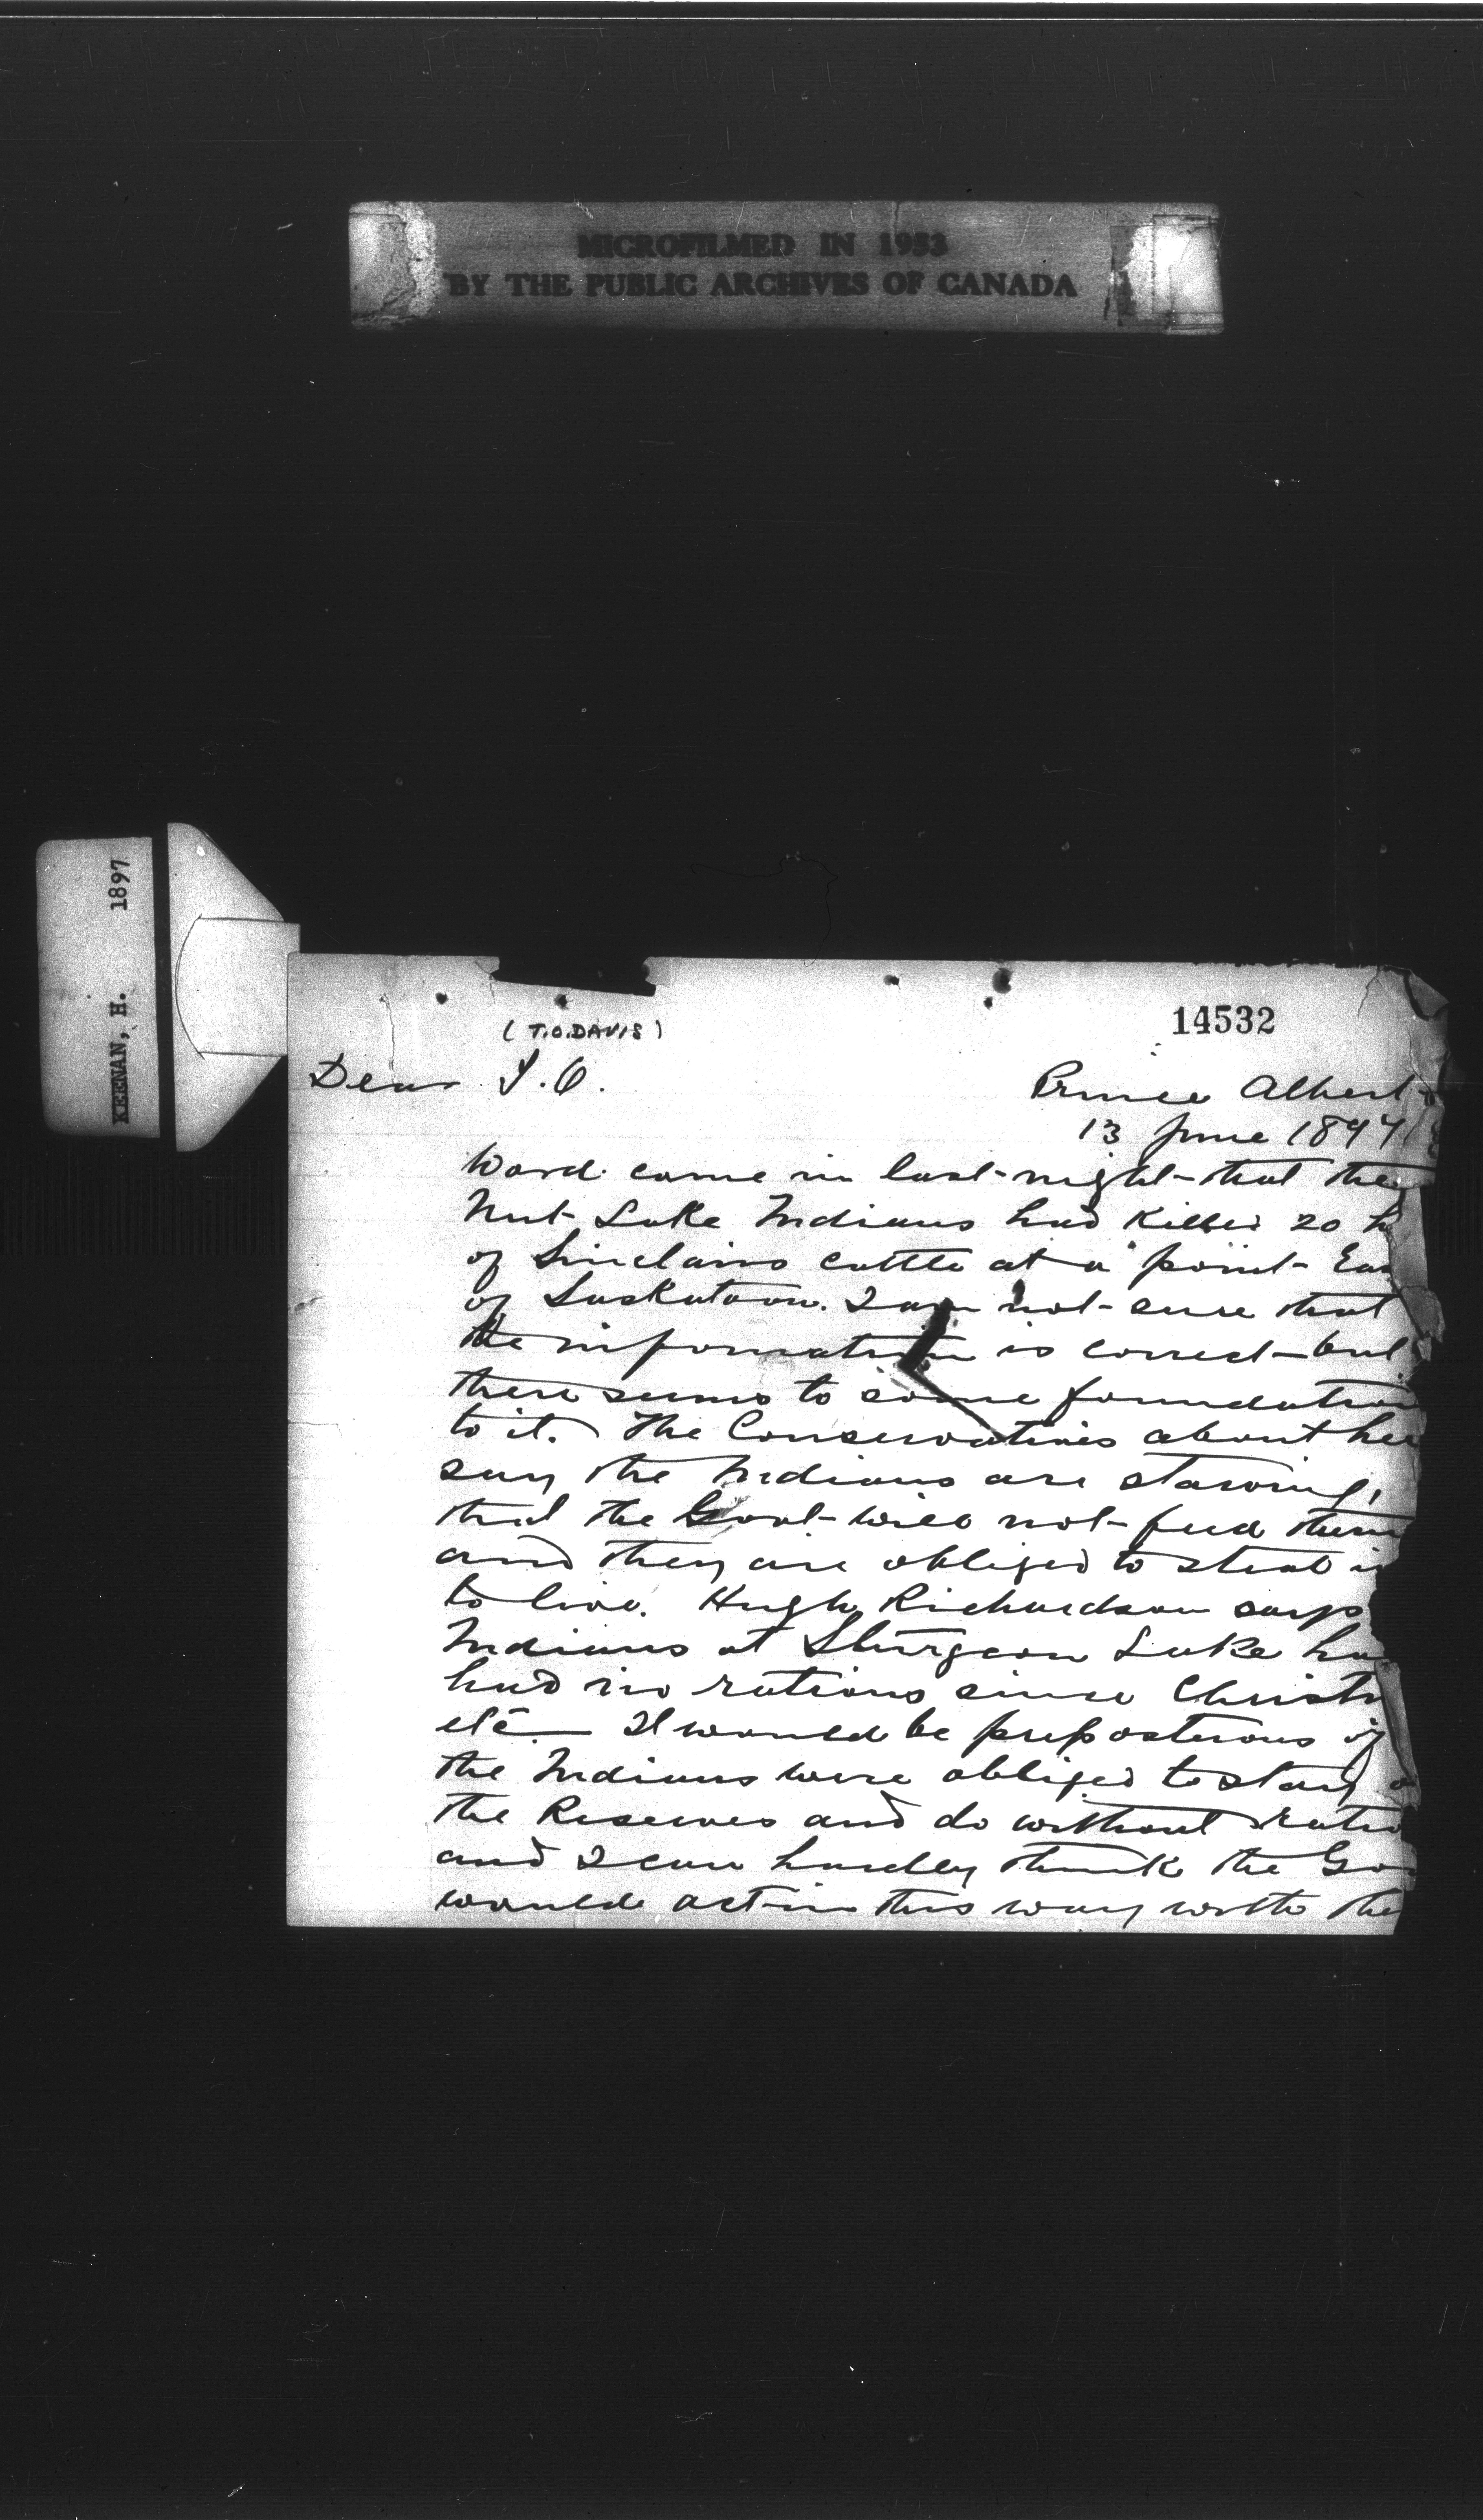 MICROFILMED IN 1953
BY THE PUBLIC ARCHIVES OF CANADA
KEENAN, H. 1897
14532
(T.O.DAVIS)
Dear T.O.
Prince Albert
13 June 1897
Word came in last night that the
Nut Lake Indians had killed 20 h
of Sinclairs cattle at a point Eas
of Saskatoon. I am not sure that
the information is correct but
there seems to some foundation
to it. The Conservatives about her
say the Indians are starving,
that the Govt will not feed them
and they are obliged to steal i
to live. Hugh Richardson says
Indians at Sturgeon Lake ha
had no rations since Christ
etc It would be preposterous if
the Indians were obliged to stay o
the Reserves and do without ratio
and I can hardly think the Go
would act in this way with the